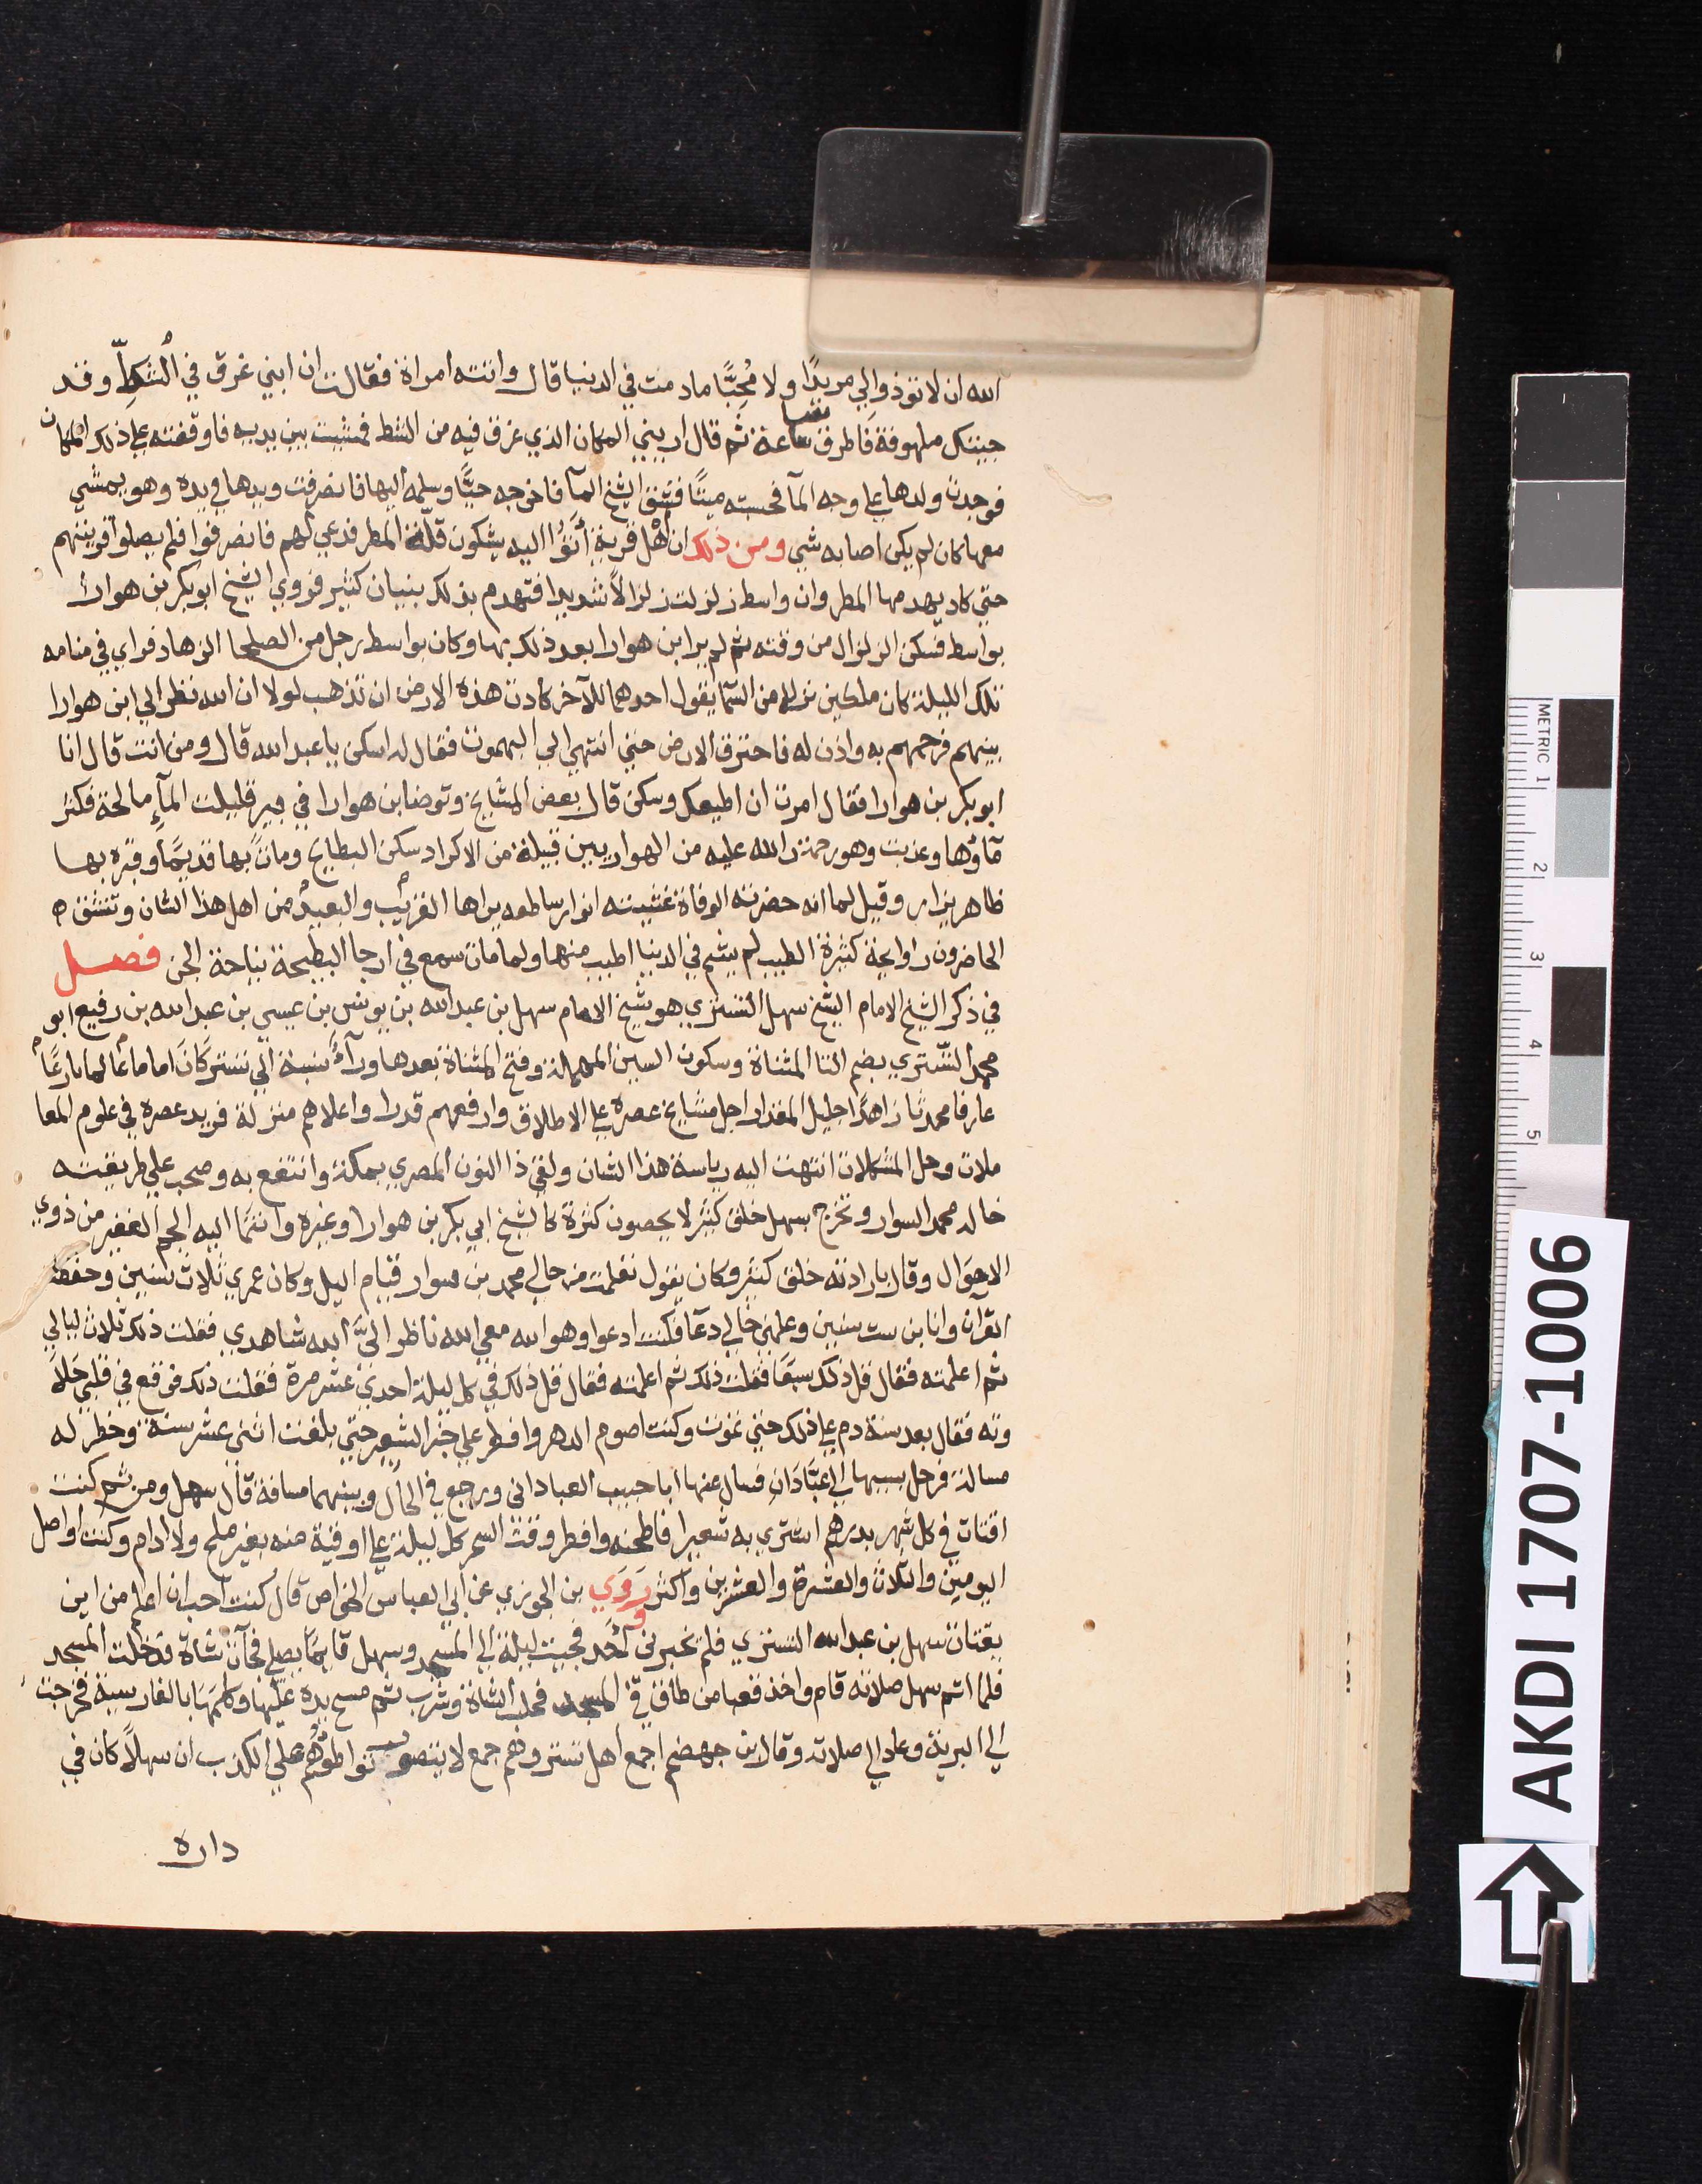 الله ان لا تؤذوا لي مريدًا ولا مُحِبًّا ما دمت في الدنيا قال واتته امراة فقالت ان ابني غرق في الشطّ وقد
جيتك ملهوفة فاطرق ساعة ثم قال اريني المكان الذي غرق فيه من الشط فمشيت بين يديه فاوقفته علي ذلك المكان
فوجدت ولدها علي وجه المآ فحسبته ميتًا فشق الشيخ المآ فاخرجه حيًّا وسلمه اليها فانصرفت ويدها في يده وهو يمشي
معها كان لم يكن اصابه شي ومن ذلك ان اهل قرية أتَوْا اليه يشكون قلة المطر فدعي لهم فانصرفوا فلم يصلوا قريتهم
حتي كاد يهدمها المطر وان واسط زلزلت زلزالًا شديدا فتهدم بذلك بنيان كثير فروي الشيخ ابو بكر بن هوارا
بواسط فسكن الزلزال من وقته ثم لم ير ابن هوارا بعد ذلك بها وكان بواسط رجل من الصلحا الزهاد فراي في منامه
تلك الليلة كان ملكين نزلا من السمآ يقول احدهما للآخر كادت هذه الارض ان تذهب لولا ان الله نظر الي ابن هوارا
بينهم فرحمهم به واذن له فاخترق الارض حتي انتهي الي البهموت فقال له اسكن يا عبد الله قال ومن انت قال انا
ابو بكر بن هوارا فقال امرت ان اطيعك وسكن قال بعض المشايخ وتوضا بن هوارا في بير قليلت المآءِ مالحة فكثر
مآؤها وعذبت وهو رحمة الله عليه من الهواريين قبيلة من الاكراد سكن البطايح ومات بها قديمًا وقبره بها
ظاهر يزار وقيل لما انه حضرته الوفاة غشيته انوار ساطعه يراها القريب والبعيد من اهل هذا الشان وتنشق
الحاضرون روايحة كثيرة الطيب لم يشم في الدنيا اطيب منها ولما مات سمع في ارجا البطيحة نياحة الجن فصل
في ذكر الشيخ الامام الشيخ سهل التستري هو شيخ الامام سهل بن عبد الله بن يونس بن عيسي بن عبد الله بن رفيع ابو
محمد التستري بضم التا المثناة وسكون السين المهملة وفتح المثناة بعدها ورآءً نسبة الي تستر كَانَ اماما عالما بارعًا
عارفا محمدثا زاهدًا جليل المقدار اجل مشايخ عصره علي الاطلاق وارفعهم قدرا واعلاهم منزلة فريد عصره في علوم المعا
ملات وحل المشكلات انتهت اليه رياسة هذا الشان ولقي ذا النون المصري بمكة وانتفع به وصحب علي طريقته
خاله محمد السوار وتخرج بسهل خلق كثير لا يحصون كثرة كالشيخ ابي بكر بن هوارا وغيره وانتمَا اليه الجم الغفير من ذوي
الاحوال وقال بارادته خلق كثير وكان يقول تعلمت من خالي محمد بن سوار قيام اليل وكان عمري ثلاث سنين وحفظت
القران وانا بن ست سنين وعلمني خالي دعآ فكنت ادعوا وهو الله معي الله ناظر اليَّ الله شاهدي فقلت ذلك ثلاث ليالي
ثم اعلمته فقال قل ذلك سبعًا فقلت ذلك ثم اعلمته فقال قل ذلك في كل ليلة احدي عشر مرة فقلت ذلك فوقع في قلبي حلا
وته فقال بعد سنة دم علي ذلك حتي تموت وكنت اصوم الدهر وافطر علي خبز الشعير حتي بلغت اثني عشر سنة وخطر له
مسالة فرحل بسببها الي عَبَّادَانِ فسال عنها ابا حبيب العباداني ورجع في الحال وبينهما مسافة قال سهل ومن ثم كنت
اقتات في كل شهر بدرهم اشتري به شعيرا فاطحنه وافطر وقت السحر كل ليلة علي اوقية منه بغير ملح ولا ادام وكنت اواصل
اليومين والثلاث والعشرة والعشرين واكثر رَوَي بن الجوزي عن ابي العباس الخواص قال كنت احب ان اعلم من اين
يقتات سهل بن عبد الله التستري فلم تخبرني احد فجيت ليلة الي المسجد وسهل قايمًا يصلي فجآت شاة فدخلت المسجد
فلما اتم سهل صلاته قام واخذ قعبا من طاق في المسجد فحلب الشاة وشرب ثم مسح بيده عليها وكلمها بالفارسية فخرجت
الي البرية وعاد الي صلاته وقال بن جهضم اجمع اهل تستر وهم جمع لا يتصور تواطوهم علي الكذب ان سهلًا كان في
داره
METRIC 1 2 3 4 5
AKDI 1707-1006